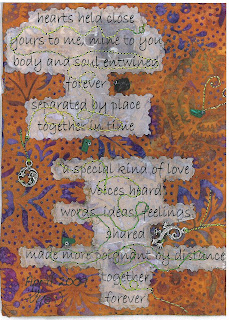 hearts held close
yours to me, mine to you
body and soul entwined
forever
separated by place
together in time
a special kind of love
voices heard
words, ideas, feelings
shared
made more poignant by distance
together
forever